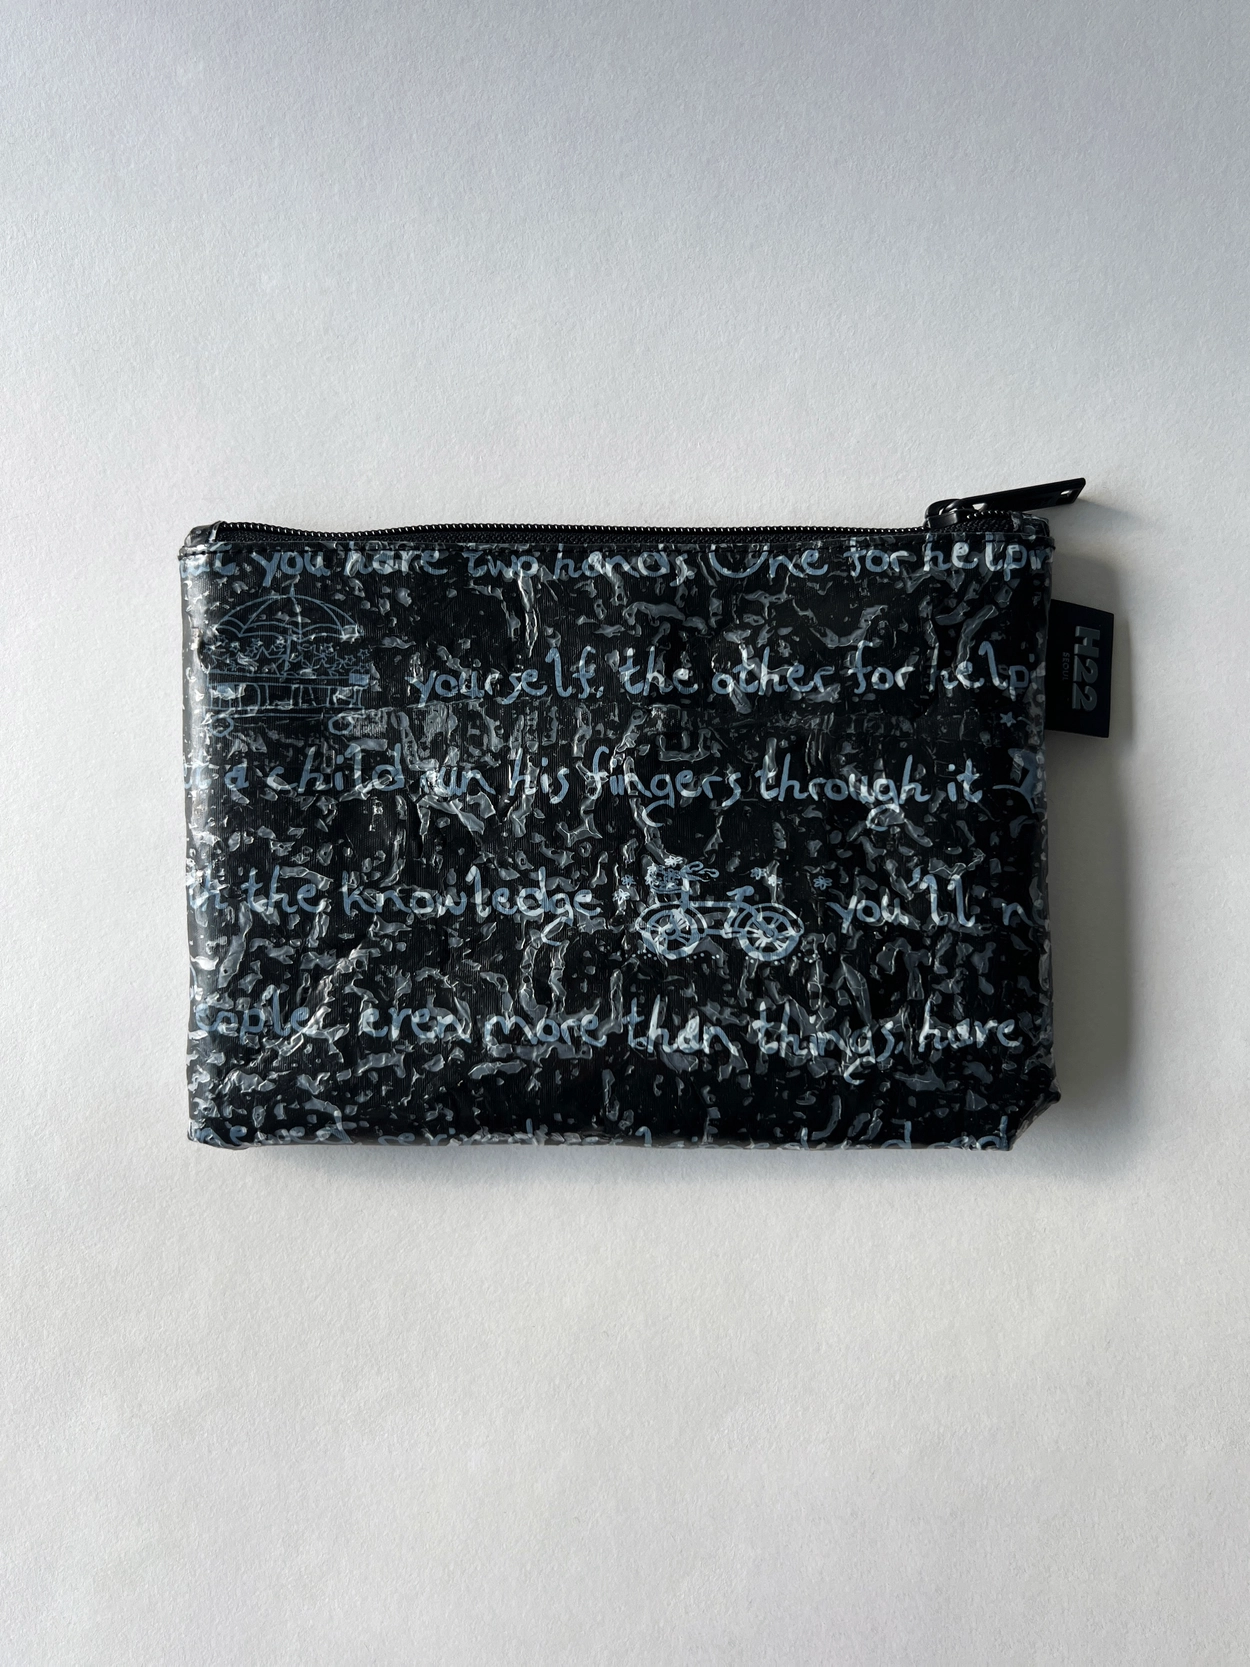 you have two hands, One for helpin
yourself, the other for help
a child run his fingers through it
th the knowledge you'll n
eople, even more than things, have
H22
SEOUL